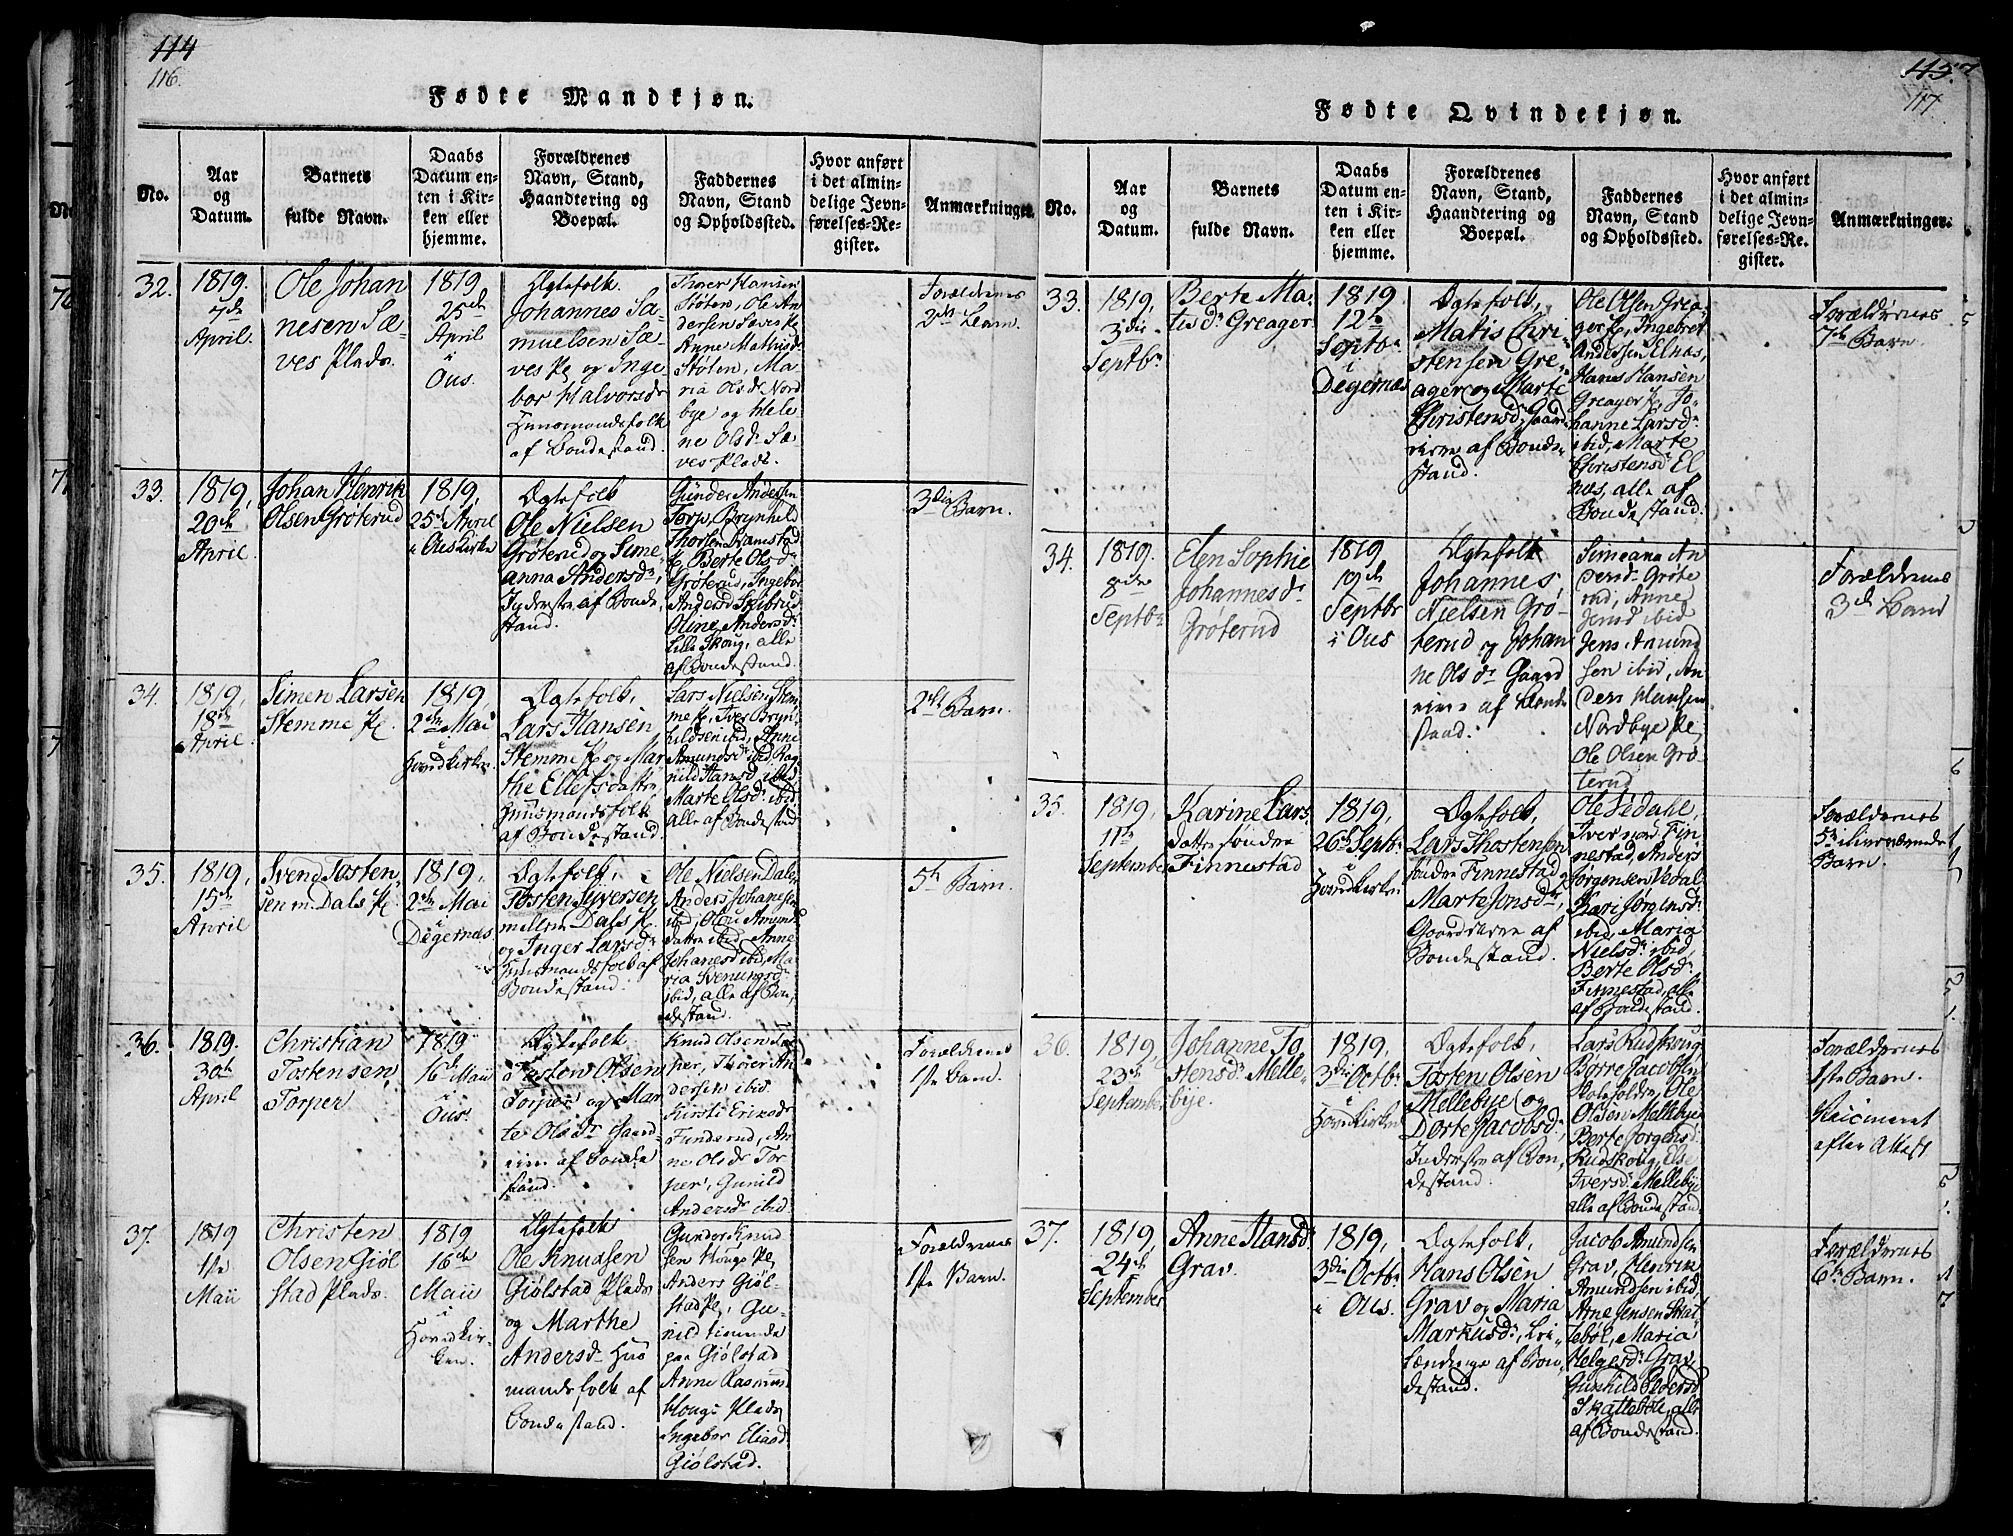 114
116.
Fødte Mandkjøn.
No.
Aar
og
Datum.
Barnets
fulde Navn.
Daabs
Datum en-
ten i Kir-
ken eller
hjemme.
Forældrenes
Navn, Stand,
Haandtering og
Boepæl.
Faddernes
Navn, Stand
og Opholdssted.
Hvor anført
i det almin-
delige Jevn-
førelses-Re-
gister.
Anmærkninger.
32.
1819.
7de
April.
Ole Johan
nesen Sæ-
ves Plads.
1819,
25de
April
i
Ous.
Ægtefolk
Johannes Sa-
muelsen Sæ-
ves Pl og Inge
bor Halvorsdr
Huusmandsfolk
af Bondestand.
Thorer Hansen
Støten, Ole An
dersen
Anne Mathisdr
Støten, Ma-
ria Olsdr Nord
bye og Hele-
ne Olsdr Sæ-
ves Plads.
Forældrenes
3die Barn.
33.
1819,
20de
April.
Johan Henrik
Olsen Grøterud
1819,
25de April
i Ous Kirke
Ægtefolk
Ole Nielsen
Grøterud og Sime
anna Andersdr,
Inderste af Bonde,
stand.
Gunder Andersen
Torp, Brynhild
Thorsen Ramstad
Pl, Berte Olsdr
Grøterud, Ingebor
Andersd Skibrud
Oline Andersdr
Lille Skoug, alle
af Bondestand.
3die Barn.
34.
1819,
18de
April.
Simen Larsen
Stemme Pl.
1819,
2den Mai
i
Hovedkirken.
Ægtefolk,
Lars Hansen
Stemme Pl og Mar
the Ellefsdatter
Huusmandsfolk
af Bondestand.
Lars Nielsen Stem
me Pl, Iver Bryn
hildsen ibid, Anne
Amundsdr ibid, Rag
nild Hansd ibid
Marte Olsdr ibid
alle af Bondestand
2det Barn.
35.
1819,
15de
April
Svend Tosten,
sen m. Dals Pl.
1819,
2den Mai
i
Degernæs
Ægtefolk,
Tosten Syversen
mellem Dals Pl
og Inger Larsdr
Huusmandsfolk af
Bondestand.
Ole Nielsen Dale,
Anders Johanesen
ibid, Olou
datter ibid, Anne
Johanesd ibid, Ma
ria Svenungsdr
ibid, alle af Bon,
destand.
5te Barn.
36.
1819.
30te
April
Christian
Tostensen
Torper
1819
16de Maii
i
Ous.
Ægtefolk
Tostow Olsen
Torper og Mar
te Olsdr Gaard-
eiere af Bonde
stand.
Knud Olsen Tor
per, Thorer An
dersen ibid
Kirsti Ericsdr
Funderud, An
ne Olsdr Tor
per, Gunild
Andersdr ibid
Forældrenes
1ste Barn.
37.
1819
1ste
Maii
Christen
Olsen Giøl
stad Plads.
1819
16de
Maii
i
Hovedkir-
ken.
Ægtefolk
Ole Knudsen
Giølstad Plads
og Marthe
Andersdr Huus
mandsfolk af
Bondestand.
Gunder Knud
sen Hougs Pl,
Anders Giøl-
stad Pl, Gu-
nild tienende
paa Giølstad
Anne Rasmus
Hougs Plads
Ingebor Eliasd
Giølstad.
Forældrenes
1ste Barn.
117.
Fødte Qvindekjøn.
No.
Aar
og
Datum.
Barnets
fulde Navn.
Daabs
Datum en-
ten i Kir-
ken eller
hjemme.
Forældrenes
Navn, Stand,
Haandtering og
Boepæl.
Faddernes
Navn, Stand
og Opholdssted.
Hvor anført
i det almin-
delige Jevn-
førelses-Re-
gister.
Anmærkninger.
33.
1819,
3die
Septbr
Berte Ma,
tisdr Greager
1819
12te
Septbr
i
Degernæs
Ægtefolk,
Matis Chri-
stensen Gre-
ager og Marte
Christensdr, Gaard
eiere af Bonde-
stand.
Ole Olsen Grea-
ger Pl, Ingebret
Andersen Elnæs,
Hans Hansen
Greager Pl, Jo-
hanne Larsdr
ibid, Marte
Christensdr El
næs, alle af
Bondestand.
Forældrenes
7de Barn.
34.
1819.
8de
Septbr
Elen Sophie
Johannesdr
Grøterud
1819
19de
Septbr
i Ous
Ægtefolk
Johannes
Nielsen Grø-
terud og Johan
ne Olsdr Gaard
eiere af Bonde
stand.
Simeana An
dersdr Grøte
rud, Anne
Jensd ibid
Jens Amund
sen ibid, An
ders Hansen
Nordbye Pl
Ole Olsen Grø-
terud
Forældrenes
3die Barn
35.
1819,
11te
September
Karine Lars,
datter søndre
Finnestad
1819,
26de Septbr
i
Hovedkirken
Ægtefolk,
Lars Thostensen
søndre Finnestad og
Marte Jonsdr,
Gaardeiere af
Bondestand.
Ole Sedahl,
Iver nor. Fin-
nestad, Anders
Jørgensen Vedal
Kari Jørgensdr
ibid, Maria
Nielsdr ibid,
Berte Olsdr
Finnestad, alle
af Bondestand.
Forældrenes
5te Barn.
36.
1819,
23de
September
Johanne To,
stensdr Melle,
bye.
1819,
3die Octbr
i
Hovedkirken
Ægtefolk,
Tosten Olsen
Mellebye og
Dorte Jacobsdr,
Inderste af Bon,
destand.
Lars Rudskoug,
Børre Jacobsen
Ole
Olsen Mellebye
Berte Jørgensdr
Rudskoug, Else
Iversdr Mellebye
alle af Bondestand
Forældrenes
1ste Barn.
Vaccineret
efter Attest
37.
1819,
24de
September
Anne Hansd
Grav.
1819,
3die Octbr
i Ous.
Ægtefolk,
Hans Olsen
Grav og Maria
Markusdr,
af Bon,
destand.
Jacob Amundsen
Grav, Henrik
Amundsen ibid,
Arne Jensen Skat
tebøl, Maria
Helgesdr Grav
Gunhild
Skattebøl, alle
af Bondestand.
Forældrenes
6te Barn.